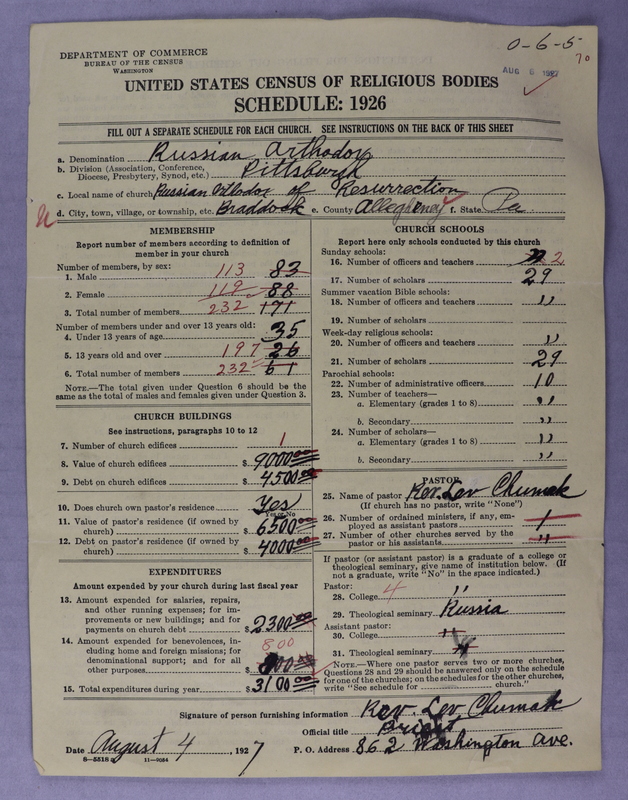 DEPARTMENT OF COMMERCE
BUREAU OF THE CENSUS
WASHINGTON
0-6-5
70
AUG 6 1927
UNITED STATES CENSUS OF RELIGIOUS BODIES
SCHEDULE: 1926
FILL OUT A SEPARATE SCHEDULE FOR EACH CHURCH. SEE INSTRUCTIONS ON THE BACK OF THIS SHEET
a. Denomination Russian Orthodox
b. Division (Association, Conference, Diocese, Presbytery, Synod, etc.) Pittsburgh
c. Local name of church Russian Orthodox of Resurrection
d. City, town, village, or township, etc. Braddock e. County Allegheney f. State Pa
MEMBERSHIP
Report number of members according to definition of member in your church
Number of members, by sex:
1. Male 113 83
2. Female 119 88
3. Total number of members 232 171
Number of members under and over 13 years old:
4. Under 13 years of age 35
5. 13 years old and over 197 26
6. Total number of members 232 61
NOTE.—The total given under Question 6 should be the same as the total of males and females given under Question 3.
CHURCH BUILDINGS
See instructions, paragraphs 10 to 12
7. Number of church edifices 1
8. Value of church edifices $9000.00
9. Debt on church edifices $4500.00
10. Does church own pastor's residence? Yes
Yes or No
11. Value of pastor's residence (if owned by church) $6500.00
12. Debt on pastor's residence (if owned by church) $4000.00
EXPENDITURES
Amount expended by your church during last fiscal year
13. Amount expended for salaries, repairs, and other running expenses; for improvements or new buildings; and for payments on church debt $2300.00
14. Amount expended for benevolences, including home and foreign missions; for denominational support; and for all other purposes 800 $
15. Total expenditures during year $3100.00
CHURCH SCHOOLS
Report here only schools conducted by this church
Sunday schools:
16. Number of officers and teachers 2
17. Number of scholars 29
Summer vacation Bible schools:
18. Number of officers and teachers "
19. Number of scholars
Week-day religious schools:
20. Number of officers and teachers "
21. Number of scholars 29
Parochial schools:
22. Number of administrative officers 10
23. Number of teachers—
a. Elementary (grades 1 to 8) "
b. Secondary "
24. Number of scholars—
a. Elementary (grades 1 to 8) "
b. Secondary "
PASTOR
25. Name of pastor Rev. Lev Chumak
(If church has no pastor, write "None")
26. Number of ordained ministers, if any, employed as assistant pastors 1
27. Number of other churches served by the pastor or his assistants "
If pastor (or assistant pastor) is a graduate of a college or theological seminary, give name of institution below. (If not a graduate, write "No" in the space indicated.)
Pastor:
28. College 4 "
29. Theological seminary Russia
Assistant pastor:
30. College "
31. Theological seminary
NOTE.—Where one pastor serves two or more churches, Questions 28 and 29 should be answered only on the schedule for one of the churches; on the schedules for the other churches, write "See schedule for church."
Signature of person furnishing information Rev. Lev Chumak
Official title Priest
Date August 4, 1927 P. O. Address 862 Washington Ave.
8—5518 a 11—9054